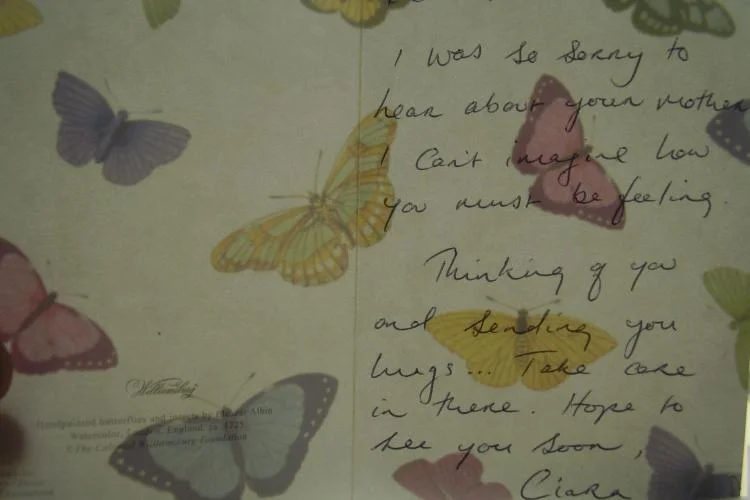 I was so sorry to
hear about your mother
I can't imagine how
you must be feeling.
Thinking of you
and sending you
hugs... Take care
in there. Hope to
see you soon,
Ciara
Williamsburg
Handpainted butterflies and insects by Eleazar Albin
Watercolor, London, England, ca. 1725.
© The Colonial Williamsburg Foundation